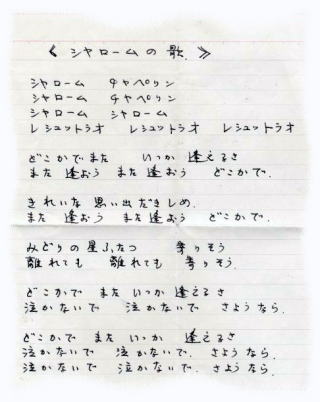 《 シャロームの歌. 》
シャローム チャベリン
シャローム チャベリン
シャローム シャローム
レシュットラオ レシュットラオ レシュットラオ
どこかでまた いつか 逢えるさ
また 逢おう また 逢おう どこかで.
きれいな 思い出 だきしめ.
また 逢おう また 逢おう どこかで.
みどりの星ふたつ 寄りそう
離れても 離れても 寄りそう.
どこかで また いつか 逢えるさ
泣かないで 泣かないで さようなら.
どこかで また いつか 逢えるさ
泣かないで 泣かないで. さようなら.
泣かないで 泣かないで. さようなら.